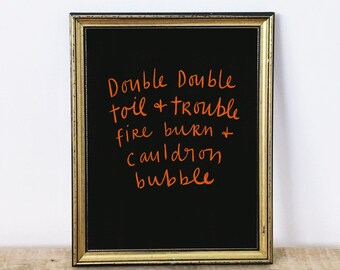 Double Double
toil + trouble
fire burn +
cauldron
bubble